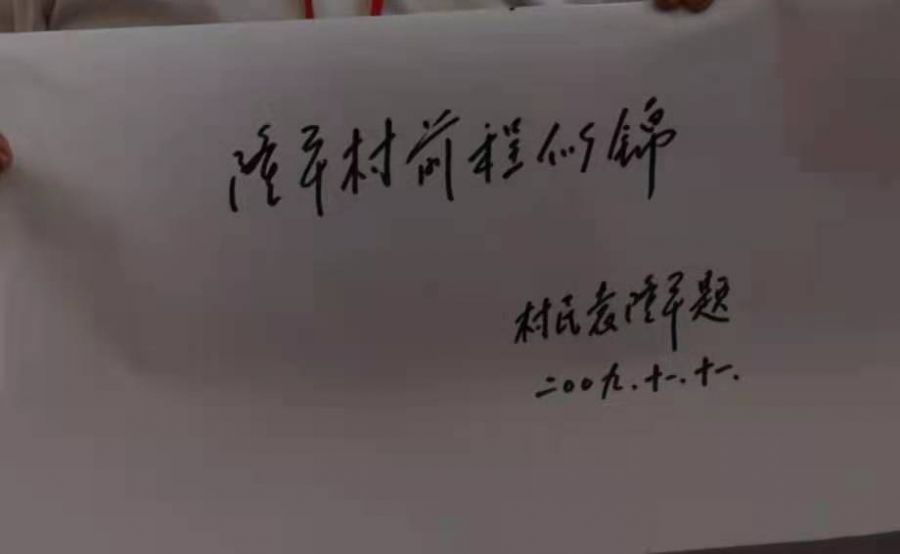 隆平村前程似锦
村民袁隆平题
二00九.十一.十一.